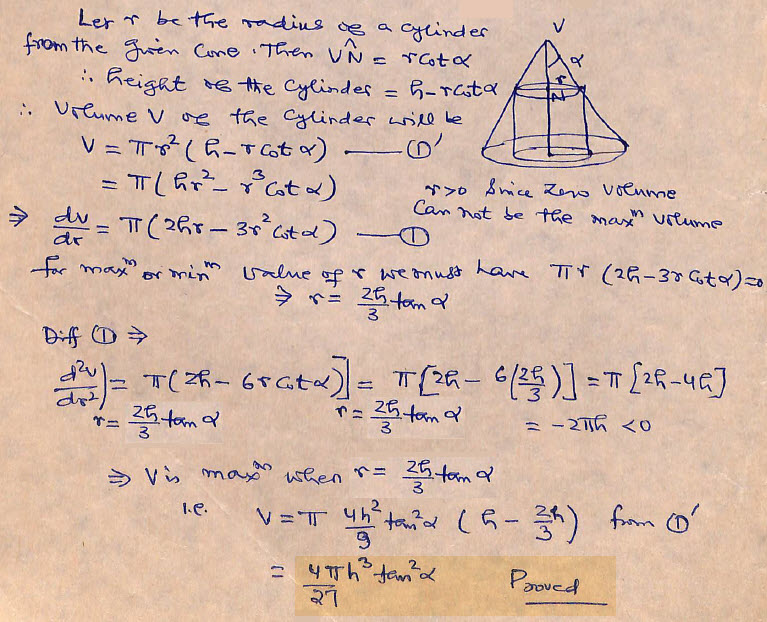 Let r be the radius of a cylinder
from the given cone. Then VN̂ = r cot α
∴ height of the cylinder = h - r cot α
∴ Volume V of the cylinder will be
V = πr² (h - r cot α) —— ①′
= π (hr² - r³ cot α)
V
α
r
N
r>0 Since Zero volume
Can not be the maxᵐ volume
⇒ dv/dr = π (2hr - 3r² cot α) —— ①
for maxᵐ or minᵐ value of r we must have πr (2h - 3r cot α) = 0
⇒ r = 2h/3 tan α
Diff ① ⇒
d²v/dr²) = π (2h - 6r cot α)] = π [2h - 6(2h/3)] = π [2h - 4h]
r = 2h/3 tan α r = 2h/3 tan α = -2πh < 0
⇒ V is maxᵐ when r = 2h/3 tan α
i.e. V = π 4h²/9 tan² α (h - 2h/3) from ①′
= 4πh³/27 tan² α Prooved